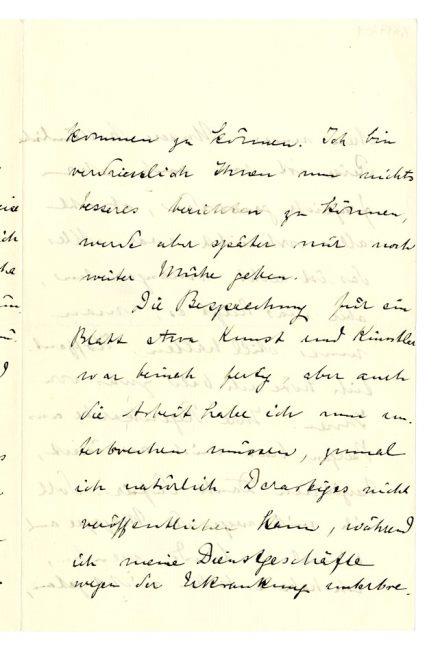 kommen zu können. Ich bin
verdriesslich Ihnen nun nichts
besseres berichten zu können,
werde aber später mir noch
weiter Mühe geben.
Die Besprechung für ein
Blatt etwa Kunst und Künstler
war beinah fertig aber auch
die Arbeit habe ich nun un-
terbrechen müssen, zumal
ich natürlich Derartiges nicht
veröffentlichen kann, während
ich meine Dienstgeschäfte
wegen der Erkrankung unterbre-